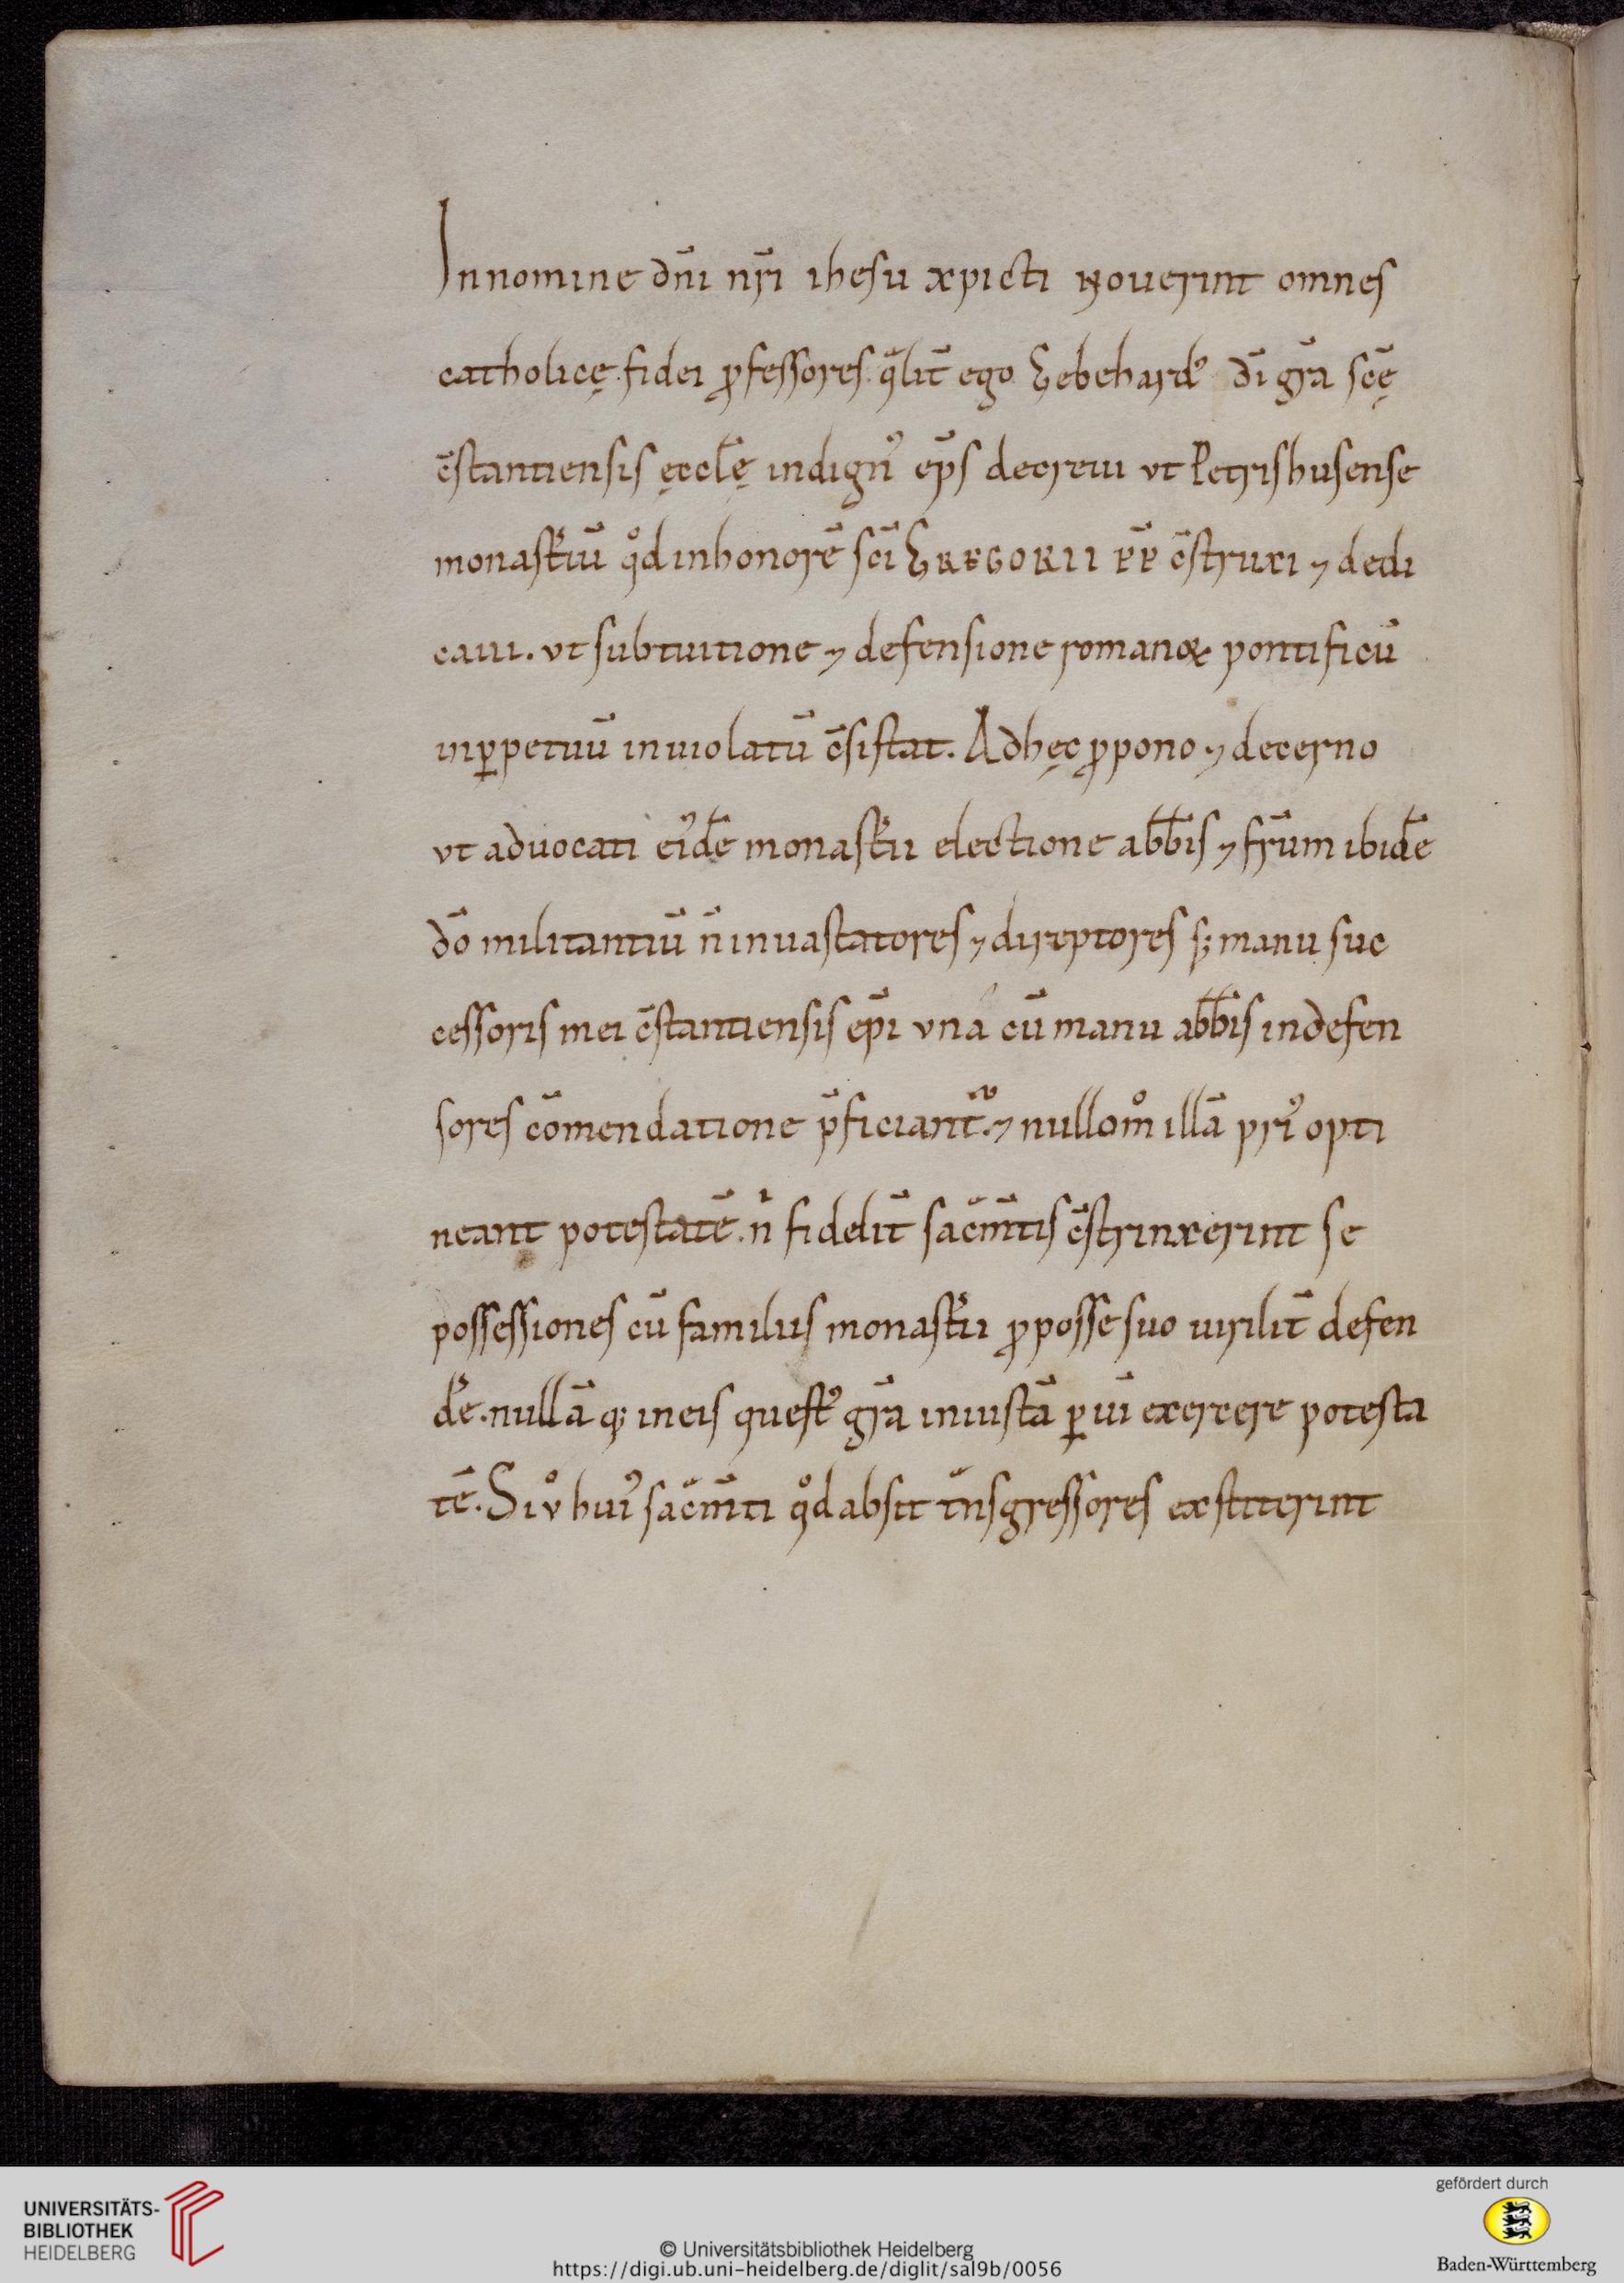 In nomine dn̄i nr̄i ihesu xpicti Nouerint omnes
catholicę fidei ꝓfessores. qͣlit̄ ego Gebehardꝰ dī gr̄a scę̄
c̄stantiensis ęccl̄ę indignꝰ ep̄s decreui vt Petrishusense
monast͛iū qͦd inhonorē sc̄i GREGORII PP̄ c̄struxi ⁊ dedi
caui. vt subtuitione ⁊ defensione romanoꝝ pontificū
inꝑpetuū inuiolatū c̄sistat. Adhęc ꝓpono ⁊ decerno
vt aduocati eiꝰdē monast͛ii electione abb̄is ⁊ fr̄um ibidē
dō militantiū n̄ inuastatores ⁊ direptores sꝫ manu suc
cessoris mei c̄stantiensis ep̄i vna cū manu abb̄is indefen
sores cōmendatione p̄ficiant᷑. ⁊ nullomͦ illā priꝰ opti
neant potestatē. nͥ fidelit̄ sac̄m̄tis c̄strinxerint se
possessiones cū familiis monast͛ii ꝓposse suo uirilit̄ defen
d͛e. nullā qꝫ ineis questꝰ gr̄a iniustā ꝑ uī exercere potesta
tē. Si vͦ huiꝰ sac̄m̄ti qͦd absit tͣnsgressores exstiterint
UNIVERSITÄTS-
BIBLIOTHEK
HEIDELBERG
© Universitätsbibliothek Heidelberg
https://digi.ub.uni-heidelberg.de/diglit/sal9b/0056
gefördert durch
Baden-Württemberg